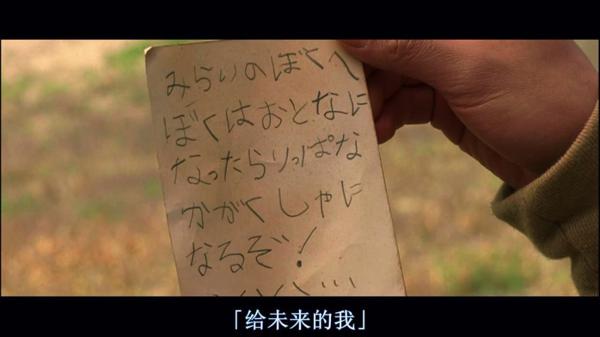 みらいのぼくへ
ぼくはおとなに
なったらりっぱな
かがくしゃに
なるぞ！
「给未来的我」